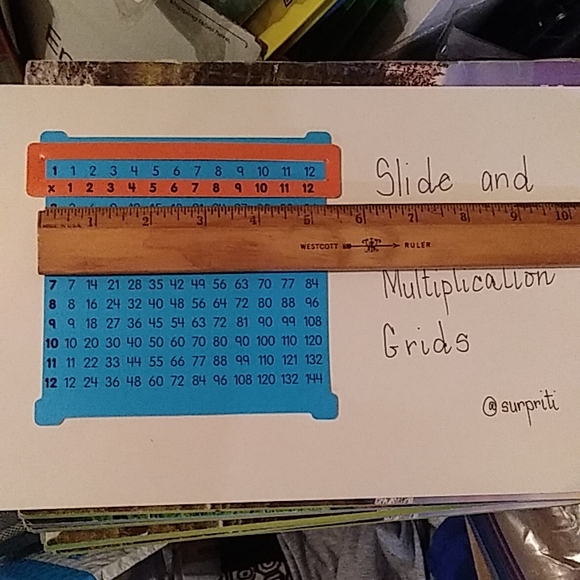 1 1 2 3 4 5 6 7 8 9 10 11 12
x 1 2 3 4 5 6 7 8 9 10 11 12
Slide and
1 2 3 4 5 6 7 8 9 10
WESTCOTT RULER
7 7 14 21 28 35 42 49 56 63 70 77 84
8 8 16 24 32 40 48 56 64 72 80 88 96
9 9 18 27 36 45 54 63 72 81 90 99 108
10 10 20 30 40 50 60 70 80 90 100 110 120
11 11 22 33 44 55 66 77 88 99 110 121 132
12 12 24 36 48 60 72 84 96 108 120 132 144
Multiplication
Grids
@surpriti